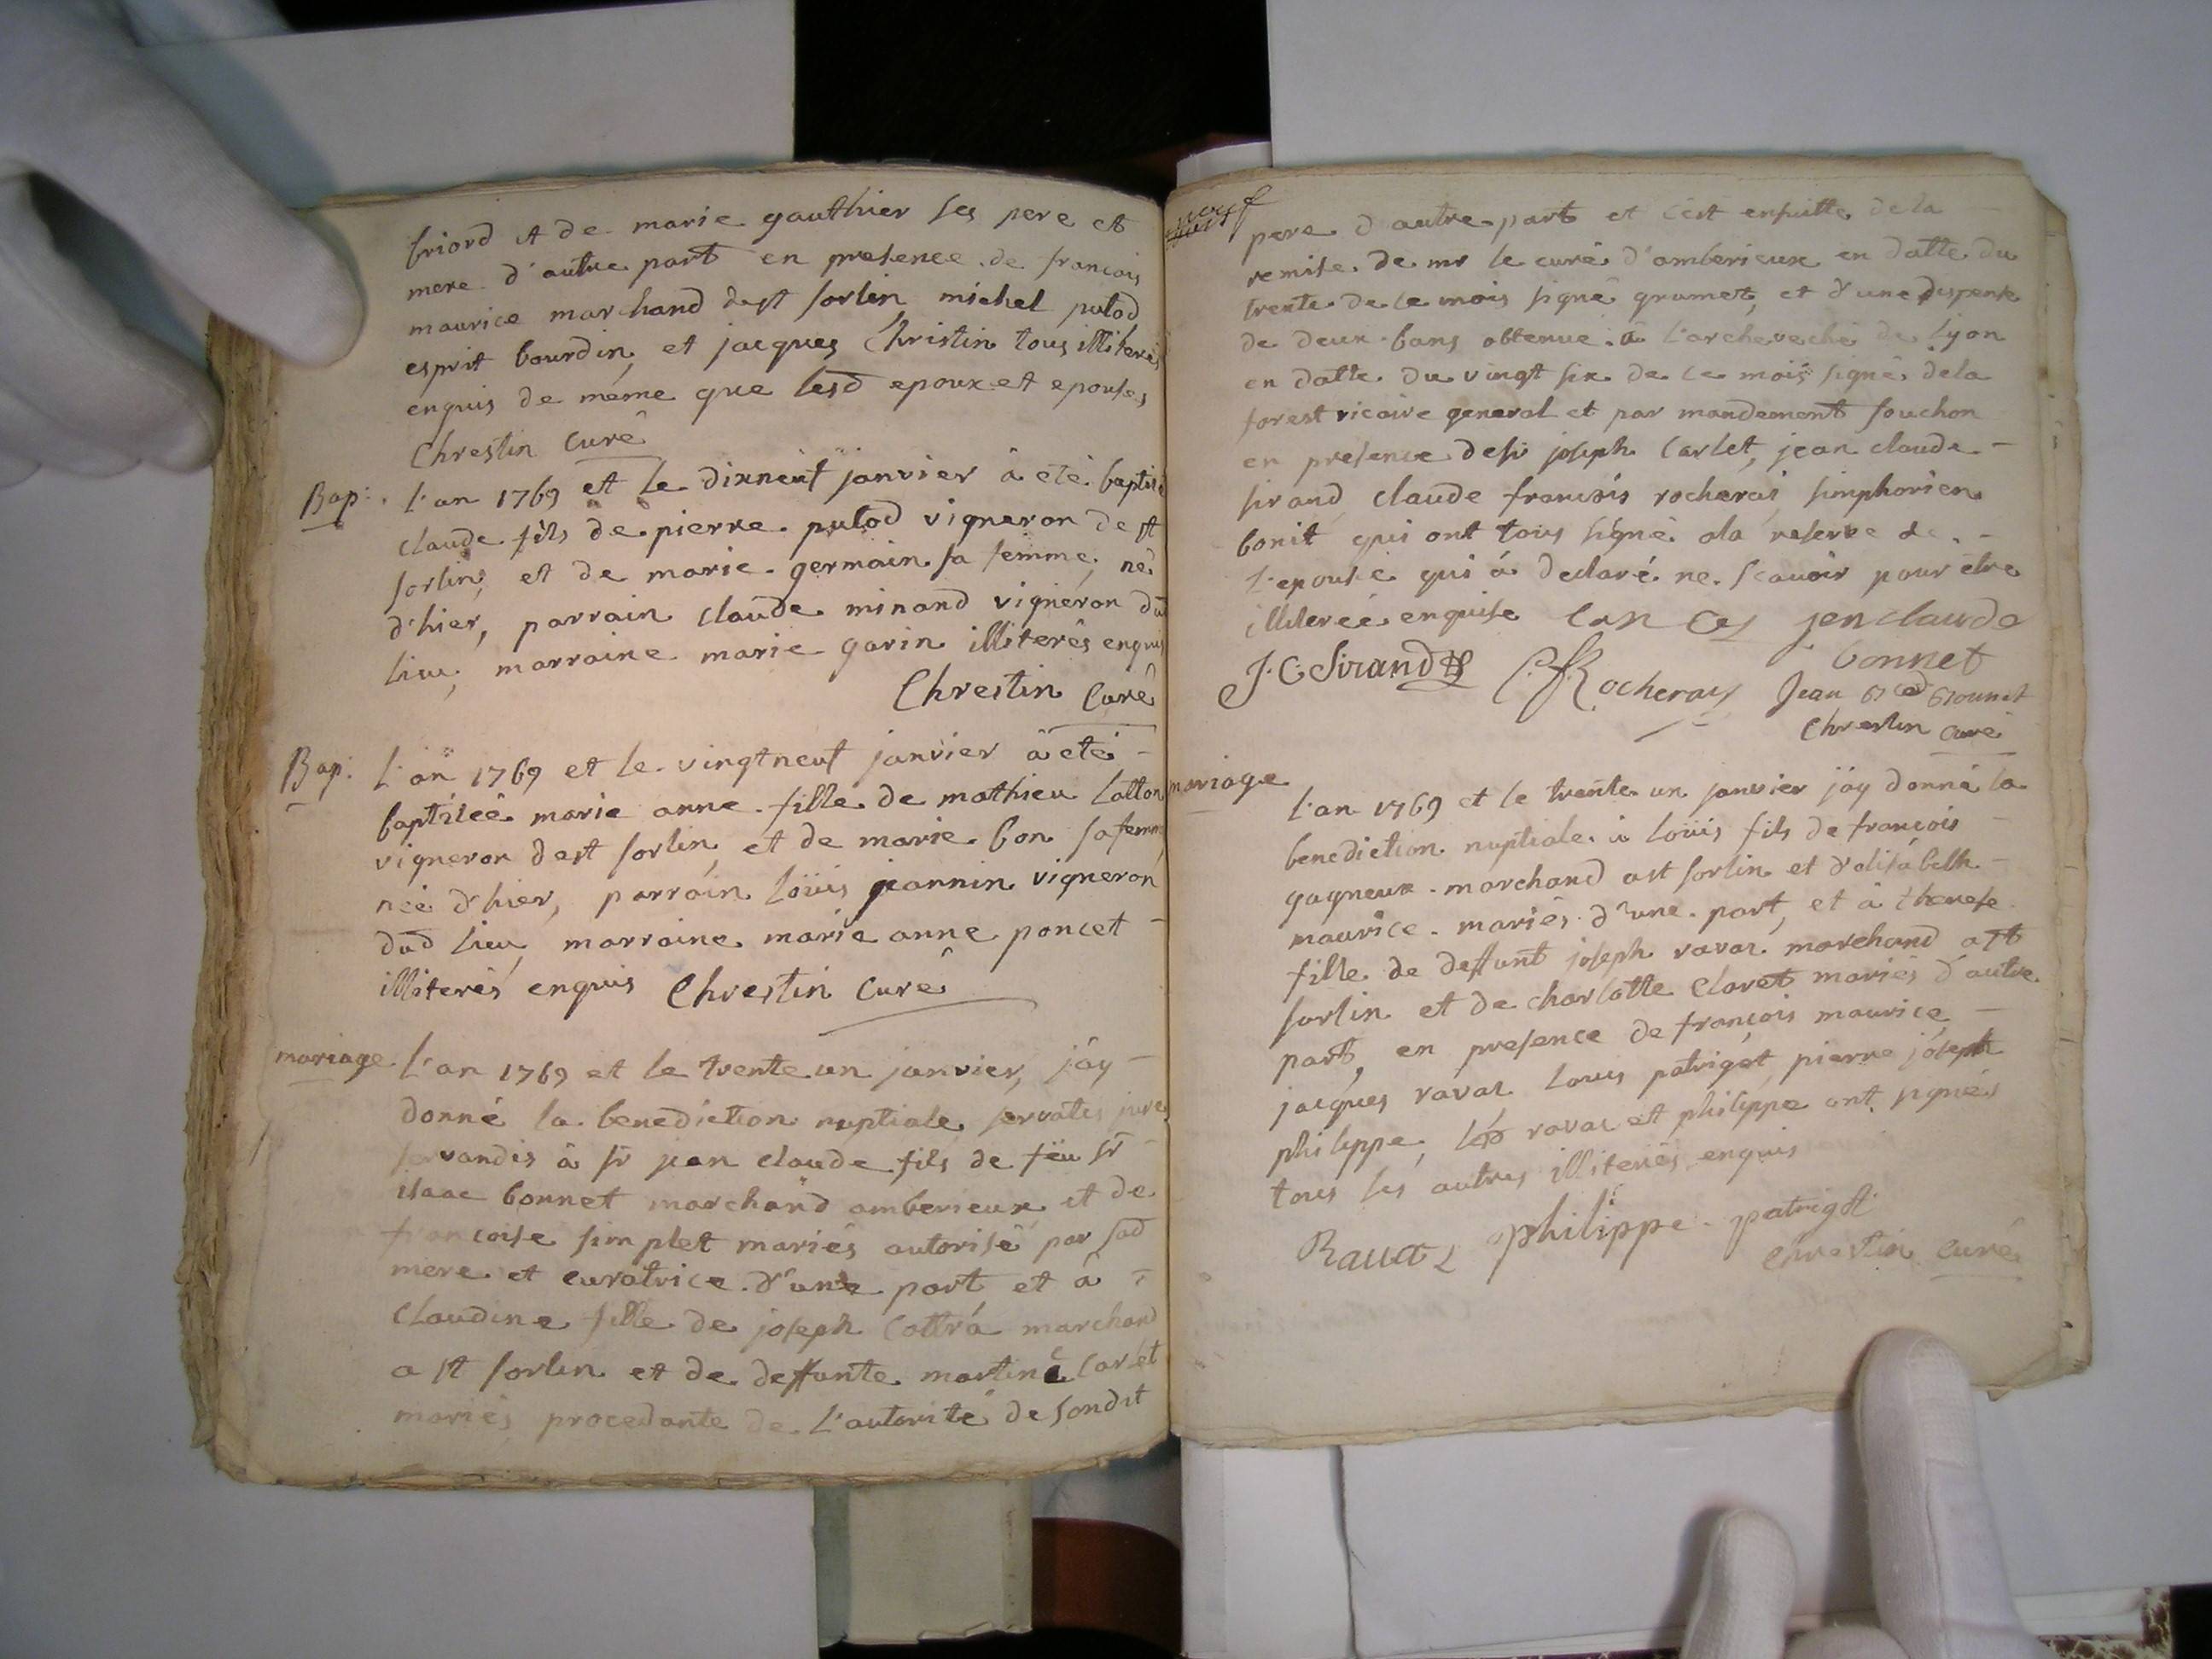 briord et de marie gauthier ses pere et
mere d'autre part en presence de francois
maurice marchand de st sorlin michel putod
esprit bourdin, et jacques Christin tous illiterés
enquis de méme que lesd epoux et epouses
Chrestin Curé
Bap: L'an 1769 et le dixneuf janvier â eté baptisé
claude fils de pierre putod vigneron de st
sorlin, et de marie germain sa femme, né
d'hier, parrain claude minand vigneron dud
lieu, marraine marie garin illiterés enquis
Chrestin Curé
Bap: L'an 1769 et le vingtneuf janvier â eté
baptiséé marie anne fille de mathieu Cotton
vigneron de st sorlin, et de marie bon sa femme
née d'hier, parrain Loüis jeannin vigneron
dud lieu, marraine marie anne poncet
illiterés enquis Chrestin Curé
mariage L'an 1769 et le trente un janvier, j'ay
donné la benediction nuptiale servatis jure
servandis â sr jean claude fils de feu sr
isaac bonnet marchand amberieux et de
francoise simplet mariés autorisé par sad
mere et curatrice d'une part et â
Claudine fille de joseph Cottrá marchand
a st sorlin et de deffunte martine Carlet
mariés procedante de L'autorité de sondit
neuf
pere d'autre part et c'est ensuitte de la
remise de mr le curé d'amberieux en datte du
trente de ce mois signé grumet, et d'une dispense
de deux bans obtenue a L'archeveché de Lyon
en datte du vingt six de ce mois signé dela
forest vicaire general et par mandement souchon
en presence de sr joseph Carlet, jean claude
sirand, claude francois rocherai, simphorien
bonit qui ont tous signé ala reserve de
L'epouse qui á declaré ne scavoir pour étre
illitereé enquise jen claude
bonnet
J. C. Sirand C. f. Rocheray Jean
Chrestin Curé
mariage L'an 1769 et le trente un janvier j'ay donné la
benediction nuptiale à Loüis fils de francois
gagneux marchand a st sorlin et d'elisabeth
maurice mariés d'une part, et â therese
fille de deffunt joseph ravat marchand a st
sorlin et de charlotte Claret mariés d'autre
part, en presence de françois maurice
jacques ravat Louis patrigot pierre joseph
philippe, lesd ravat et philippe ont signés
tous les autres illiterés enquis
Ravat philippe patrigot
Chrestin curé